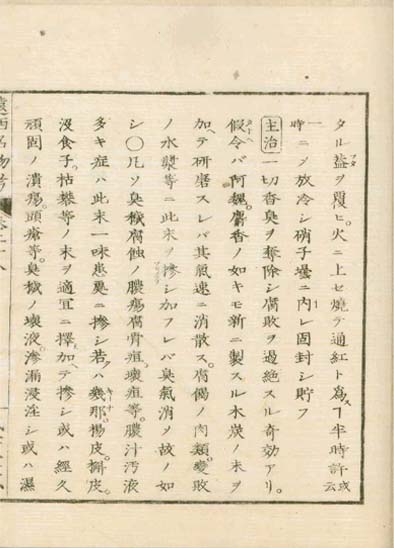 タル蓋ヲ覆ヒ火ニ上セ燒テ通紅ト爲スヿ半時許或云一
時ニ〆放冷シ硝子壜ニ内レ固封シ貯フ
主治 一切香臭ヲ奪除シ腐敗ヲ遏絶スル奇効アリ。
假令バ阿魏麝香ノ如キモ新ニ製スル木炭ノ末ヲ
加ヘテ研磨スレバ其氣速ニ消散ス。腐傷ノ肉類變敗
ノ水漿等ニ此末ヲ摻シ加フレバ臭氣消ス故ノ如
シ〇凡ソ臭穢腐蝕ノ膿瘍腐骨疽壞疽等。膿汁汚液
多キ症ハ此末一味患要ニ摻シ若クハ幾那楊皮。槲皮。
沒食子。枯礬等ノ末ヲ適宜ニ擇加ヘテ摻シ或ハ經久
頑固ノ潰瘍。頭瘡等。臭穢ノ壞液。滲漏浸淫シ或ハ濕
遠西名物考